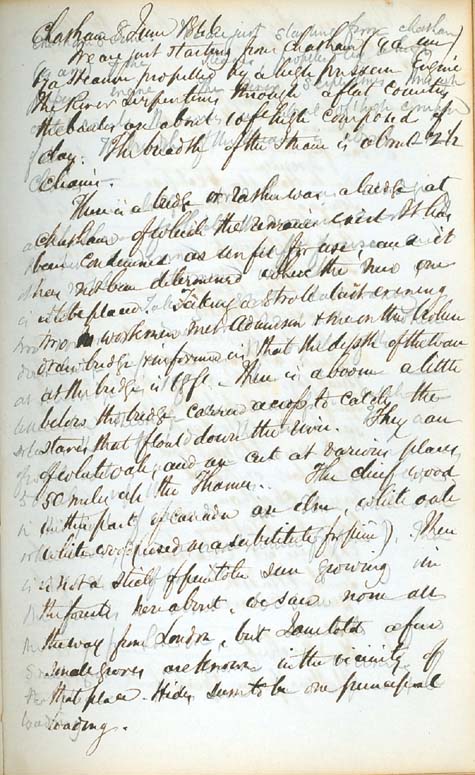 Chatham June 1846
We are just starting from Chatham 9 a.m.
by a steamer propelled by a high pressure Engine
the River serpentines through a flat country
the banks are about 10 ft high composed of
clay. The breadth of the Stream is about 2 1/2
Chains.
There is a bridge or rather was a bridge at
Chatham of which the remains exist It has
been condemned as unfit for use, and it
has not been determined where the new one
will be placed. Taking a stroll last evening
two workmen met Adamson & me on the
draw bridge & informed us that the depth of the water
at the bridge is 18 ft. There is a boom a little
below the bridge carried across to catch the
staves that float down the river. They are
of white oak, and are cut at various places
50 miles up the Thames. The chief wood
in this part of Canada are elm, white oak
white wood (used as a substitute for pine). There
is not a stick of pine to be seen growing in
the forests here about, we saw none all
the way from London, but I am told a few
small groves are known in the vicinity of
that place. Hides seem to be one principal
loading.